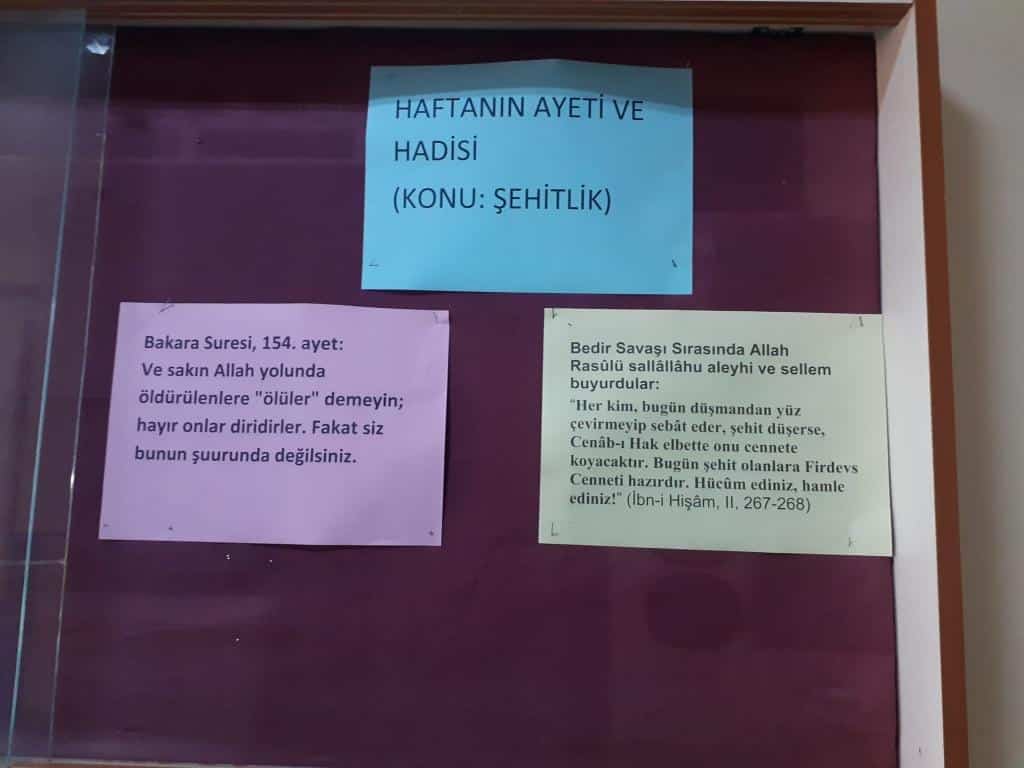 HAFTANIN AYETİ VE
HADİSİ
(KONU: ŞEHİTLİK)
Bakara Suresi, 154. ayet:
Ve sakın Allah yolunda
öldürülenlere "ölüler" demeyin;
hayır onlar diridirler. Fakat siz
bunun şuurunda değilsiniz.
Bedir Savaşı Sırasında Allah
Rasûlü sallâllâhu aleyhi ve sellem
buyurdular:
"Her kim, bugün düşmandan yüz
çevirmeyip sebât eder, şehit düşerse,
Cenâb-ı Hak elbette onu cennete
koyacaktır. Bugün şehit olanlara Firdevs
Cenneti hazırdır. Hücûm ediniz, hamle
ediniz!" (İbn-i Hişâm, II, 267-268)